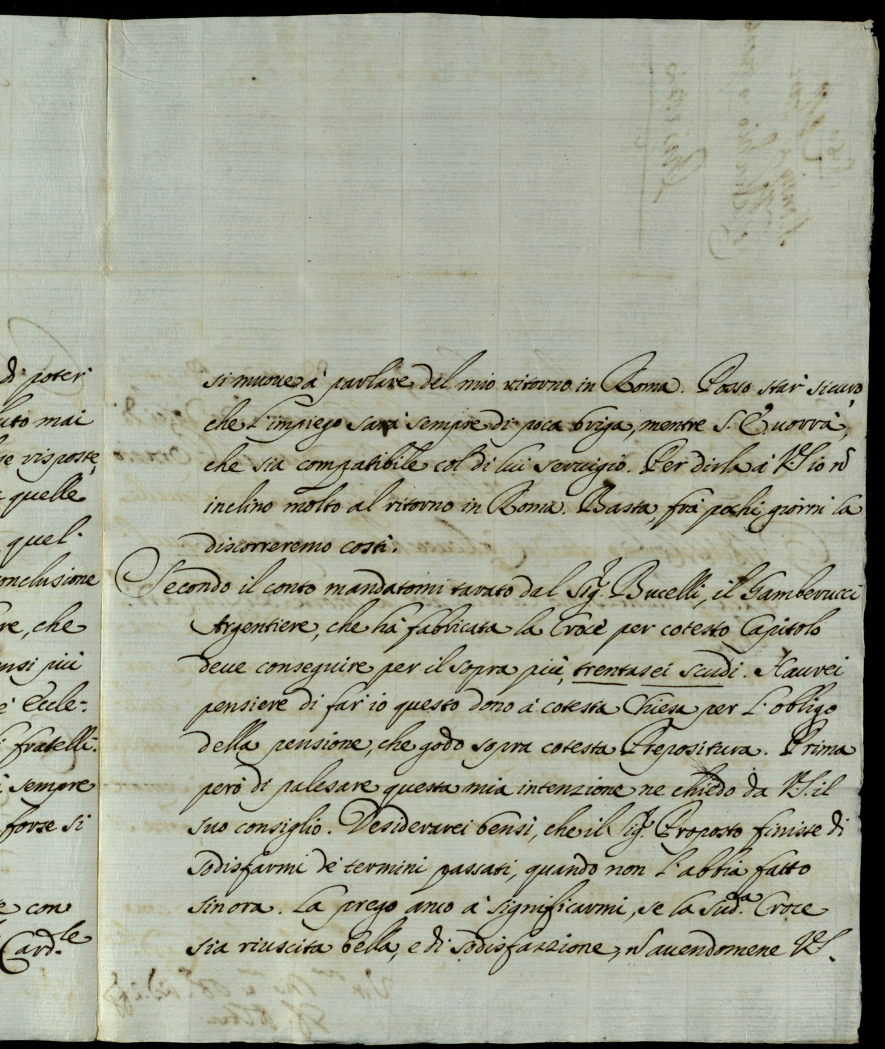 di poter
mai
se risposte,
quelle
quel-
conclusione
re, che
ensi più
è Eccle-
i fratelli.
i sempre
forse si
e con
Card.le
si muove à parlare del mio ritorno in Roma. Posso star sicuro,
che l'impiego sarà sempre di poca briga, mentre S. E. vorrà,
che sia compatibile col di lui servigio. Per dirla à V.S. io ñ
inclino molto al ritorno in Roma. Basta, frà pochi giorni la
discorreremo costì.
Secondo il conto mandatomi tarato dal Sig.r Bucelli, il Gamberucci
Argentiere, che hà fabbricata la Croce per cotesto Capitolo
deve conseguire per il sopra più, trentasei scudi. Haurei
pensiere di far io questo dono à cotesta Chiesa per l'obligo
della pensione, che godo sopra cotesta Prepositura. Prima
però di palesare questa mia intenzione ne chiedo da V.S. il
suo consiglio. Desiderarei bensì, che il Sig.r Proposto finisse di
sodisfarmi de termini passati, quando non l'abbia fatto
sinora. La prego anco à significarmi, se la sud.a Croce
sia riuscita bella, e di sodisfazzione, ñ avendomene V.S.